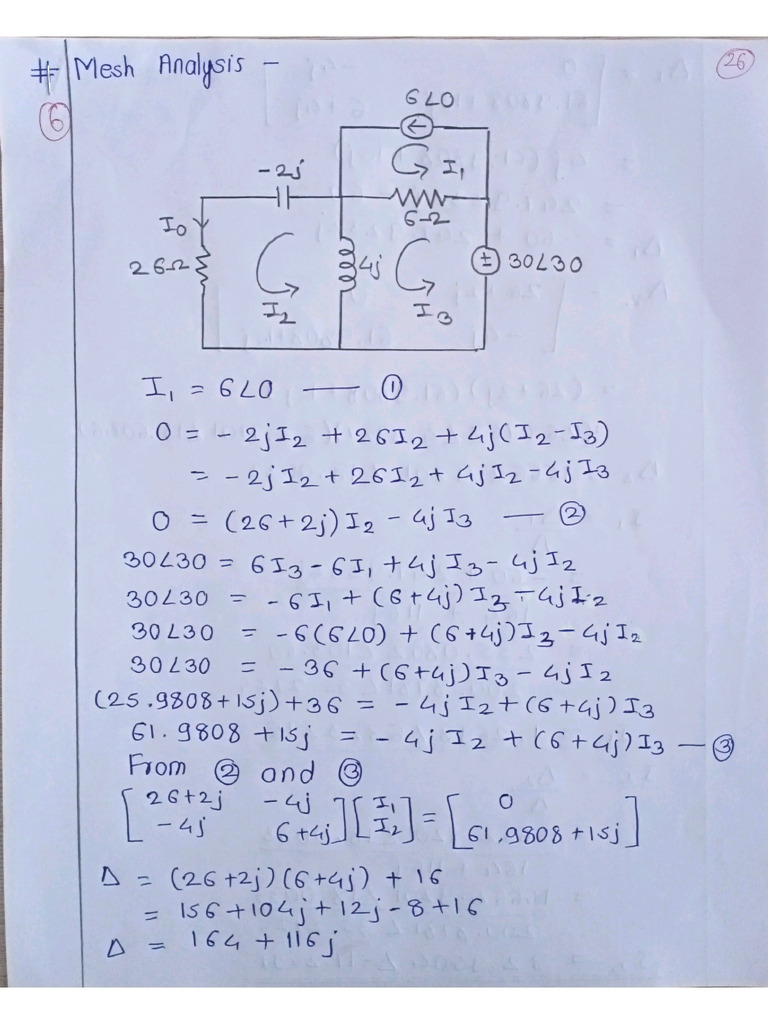 #- Mesh Analysis -
26
6
6∠0
I₁
-2j
6Ω
I₀
26Ω
4j
± 30∠30
I₂
I₃
I₁ = 6∠0 —— ①
0 = - 2jI₂ + 26I₂ + 4j(I₂-I₃)
= - 2jI₂ + 26I₂ + 4jI₂ - 4jI₃
0 = (26+2j)I₂ - 4jI₃ —— ②
30∠30 = 6I₃ - 6I₁ + 4jI₃ - 4jI₂
30∠30 = -6I₁ + (6+4j)I₃ - 4jI₂
30∠30 = -6(6∠0) + (6+4j)I₃ - 4jI₂
30∠30 = -36 + (6+4j)I₃ - 4jI₂
(25.9808+15j)+36 = - 4jI₂ + (6+4j)I₃
61.9808 + 15j = - 4jI₂ + (6+4j)I₃ — ③
From ② and ③
[26+2j -4j] [I₁] = [0]
[-4j 6+4j] [I₂] [61.9808+15j]
Δ = (26+2j)(6+4j) + 16
= 156+104j+12j-8+16
Δ = 164 + 116j